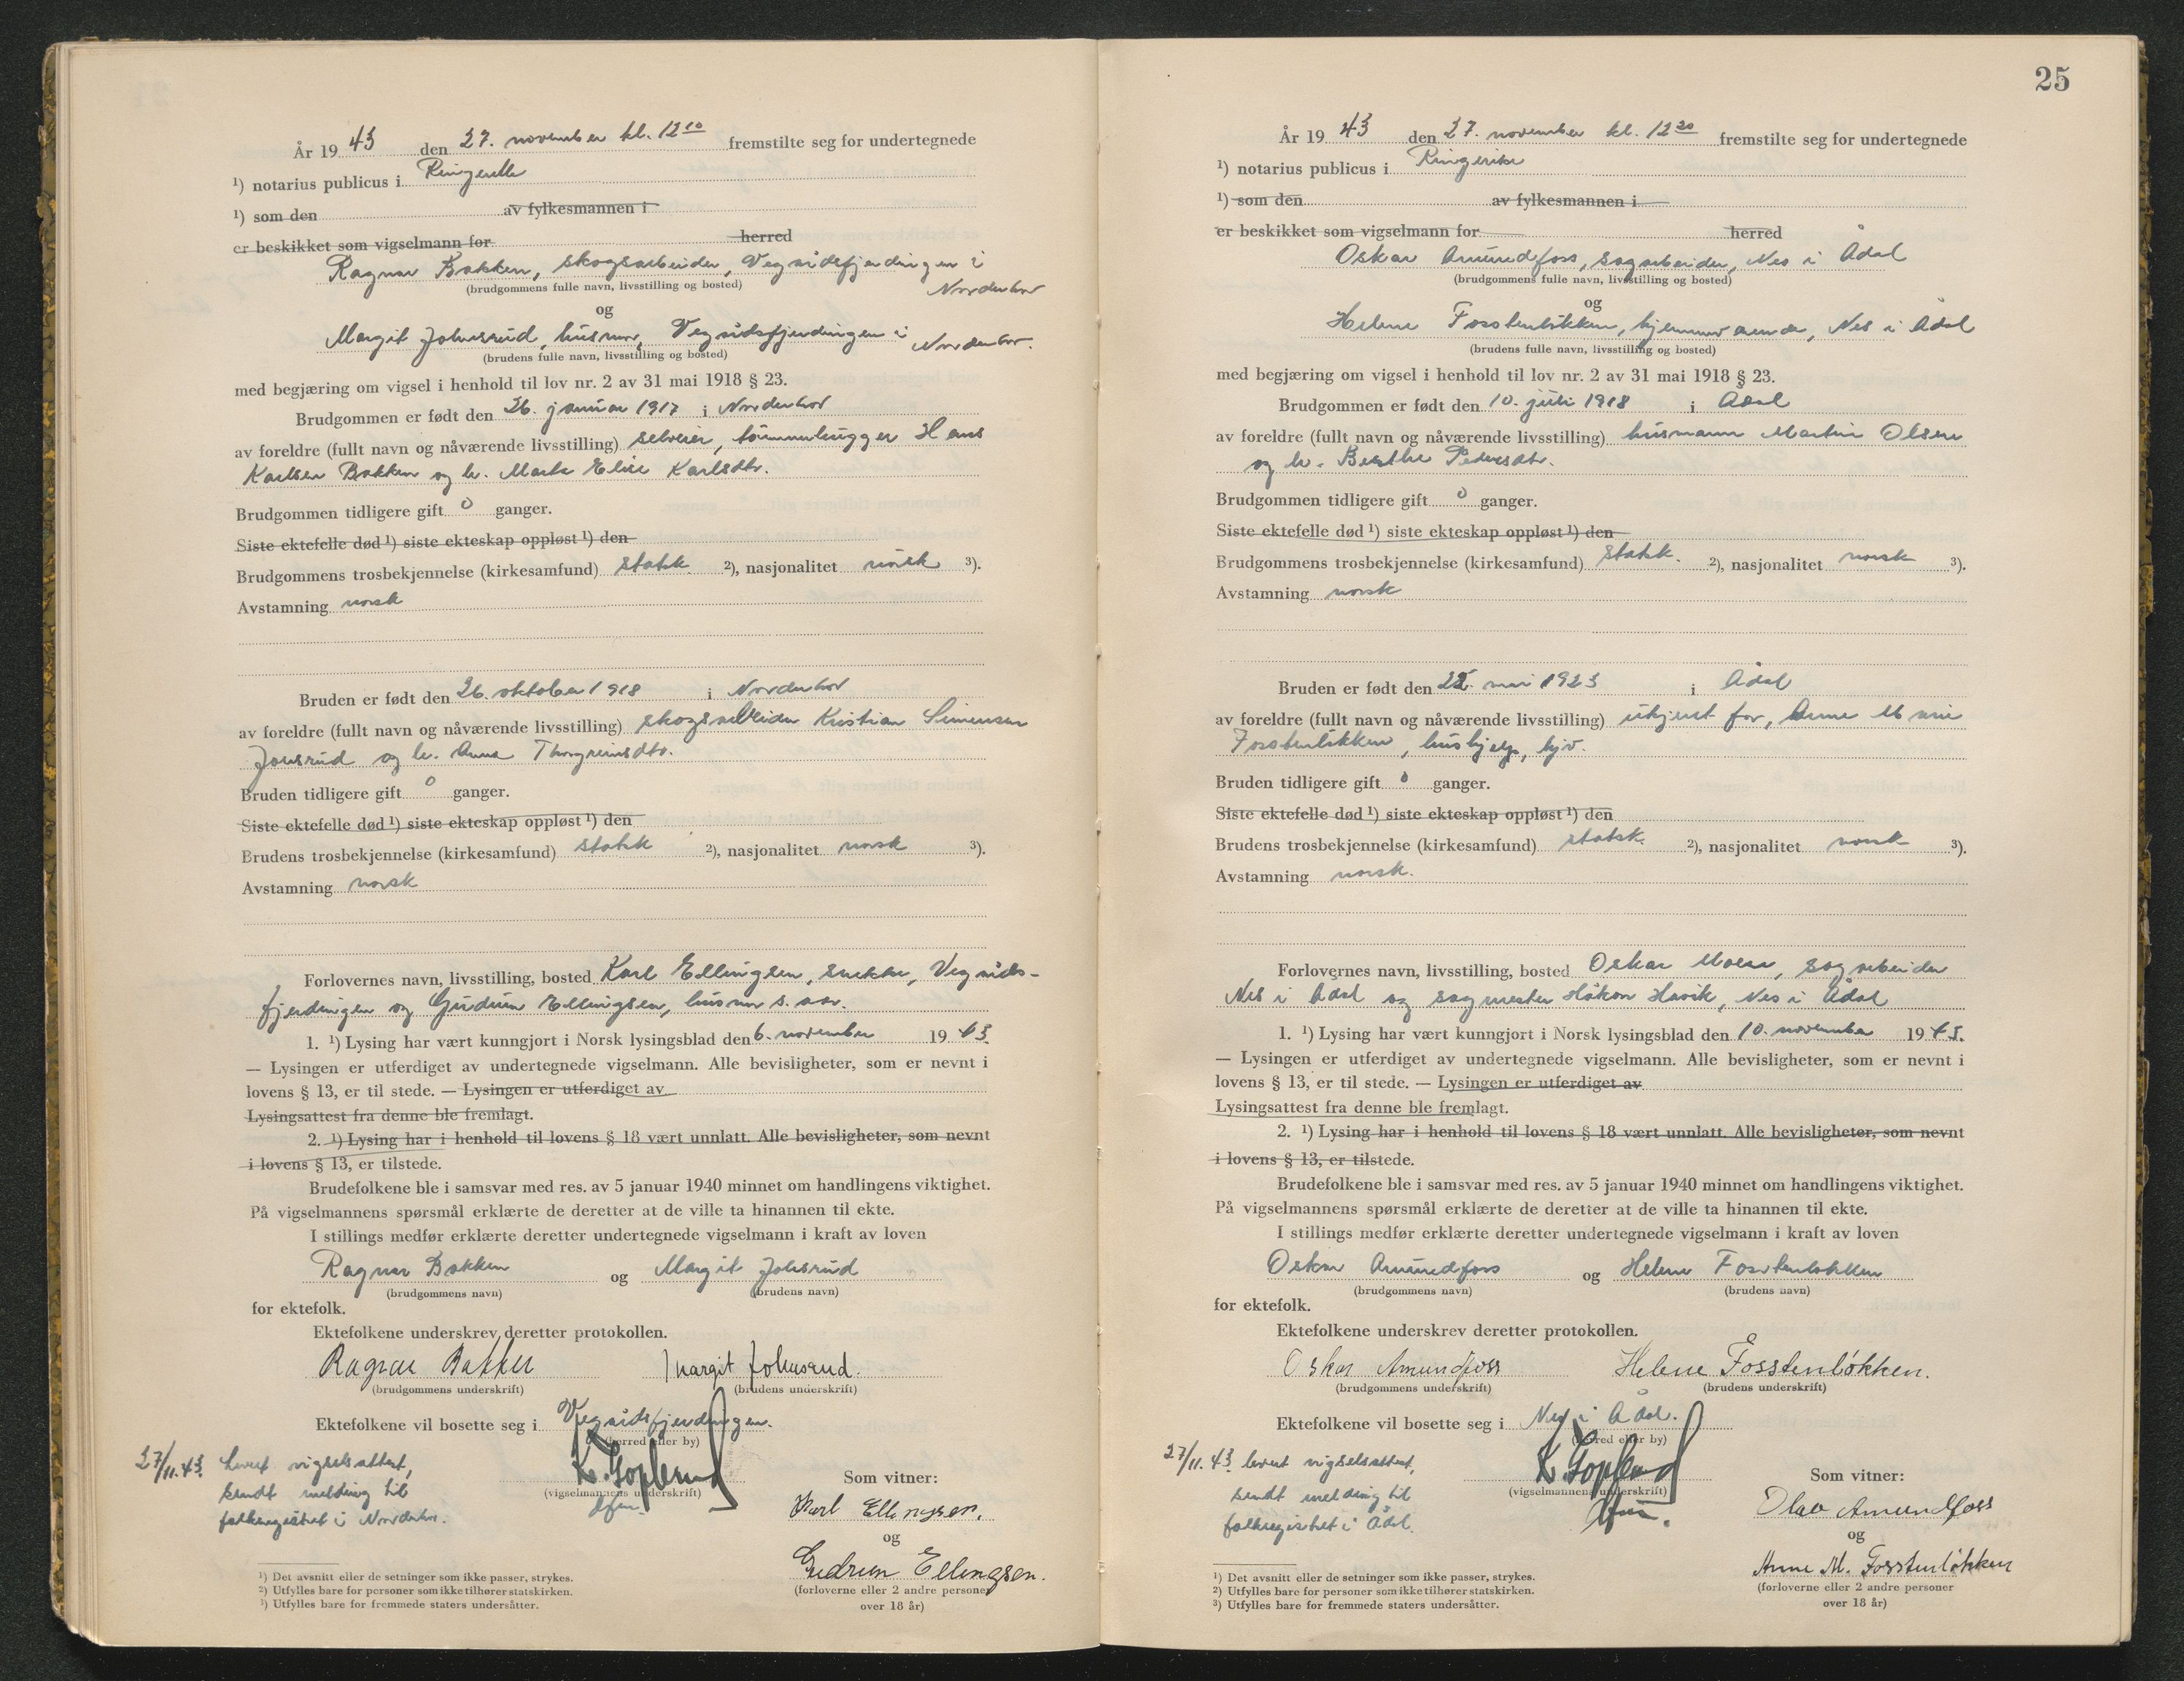 År 19 43 den 27. november kl. 12 10 fremstilte seg for undertegnede
1) notarius publicus i Ringerike
1) som den av fylkesmannen i
er beskikket som vigselmann for herred
Ragnar Bakken, skogsarbeider, Vegsidsfjerdingen i
Norderhov
(brudgommens fulle navn, livsstilling og bosted)
og
Margit Johnsrud, husmor, Vegsidsfjerdingen i Norderhov.
(brudens fulle navn, livsstilling og bosted)
med begjæring om vigsel i henhold til lov nr. 2 av 31 mai 1918 § 23.
Brudgommen er født den 26. januar 1917 i Norderhov
av foreldre (fullt navn og nåværende livsstilling) selveier, tømmerhugger Hans
Karlsen Bakken og h. Marte Elise Karlsdtr.
Brudgommen tidligere gift 0 ganger.
Siste ektefelle død 1) siste ekteskap oppløst 1) den
Brudgommens trosbekjennelse (kirkesamfund) statsk. 2), nasjonalitet norsk 3).
Avstamning norsk
Bruden er født den 26. oktober 1918 i Norderhov
av foreldre (fullt navn og nåværende livsstilling) skogsarbeider Kristian Simensen
Johnsrud og h. Anna Thorgrimsdtr.
Bruden tidligere gift 0 ganger.
Siste ektefelle død 1) siste ekteskap oppløst 1) den
Brudens trosbekjennelse (kirkesamfund) statsk 2), nasjonalitet norsk 3).
Avstamning norsk
Forlovernes navn, livsstilling, bosted Karl Ellingsen, snekker, Vegsids-
fjerdingen og Gudrun Ellingsen, husmor s. st.
1. 1) Lysing har vært kunngjort i Norsk lysingsblad den 6. november 19 43.
— Lysingen er utferdiget av undertegnede vigselmann. Alle bevisligheter, som er nevnt i
lovens § 13, er til stede. — Lysingen er utferdiget av
Lysingsattest fra denne ble fremlagt.
2. 1) Lysing har i henhold til lovens § 18 vært unnlatt. Alle bevisligheter, som nevnt
i lovens § 13, er tilstede.
Brudefolkene ble i samsvar med res. av 5 januar 1940 minnet om handlingens viktighet.
På vigselmannens spørsmål erklærte de deretter at de ville ta hinannen til ekte.
I stillings medfør erklærte deretter undertegnede vigselmann i kraft av loven
Ragnar Bakken og Margit Johnsrud
(brudgommens navn) (brudens navn)
for ektefolk.
Ektefolkene underskrev deretter protokollen.
Ragnar Bakken Margit Johnsrud.
(brudgommens underskrift) (brudens underskrift)
Ektefolkene vil bosette seg i Vegsidsfjerdingen.
(herred eller by)
27/11.43. levert vigselsattest,
sendt melding til
folkregistret i Norderhov.
K. Gopland
(vigselmannens underskrift)
Som vitner:
Karl Ellingsen.
og
Gudrun Ellingsen.
(forloverne eller 2 andre personer
over 18 år)
1) Det avsnitt eller de setninger som ikke passer, strykes.
2) Utfylles bare for personer som ikke tilhører statskirken.
3) Utfylles bare for fremmede staters undersåtter.
25
År 19 43 den 27. november kl. 12 20 fremstilte seg for undertegnede
1) notarius publicus i Ringerike
1) som den av fylkesmannen i
er beskikket som vigselmann for herred
Oskar Amundfoss, sagarbeider, Nes i Ådal
(brudgommens fulle navn, livsstilling og bosted)
og
Helene Fosstenløkken, hjemmeværende, Nes i Ådal
(brudens fulle navn, livsstilling og bosted)
med begjæring om vigsel i henhold til lov nr. 2 av 31 mai 1918 § 23.
Brudgommen er født den 10. juli 1918 i Ådal
av foreldre (fullt navn og nåværende livsstilling) husmann Martin Olsen
og h. Berthe Pedersdtr.
Brudgommen tidligere gift 0 ganger.
Siste ektefelle død 1) siste ekteskap oppløst 1) den
Brudgommens trosbekjennelse (kirkesamfund) statsk. 2), nasjonalitet norsk 3).
Avstamning norsk
Bruden er født den 22. mai 1923 i Ådal
av foreldre (fullt navn og nåværende livsstilling) ukjent far, Anne Marie
Fosstenløkken, hushjelp, hjv.
Bruden tidligere gift 0 ganger.
Siste ektefelle død 1) siste ekteskap oppløst 1) den
Brudens trosbekjennelse (kirkesamfund) statsk. 2), nasjonalitet norsk 3).
Avstamning norsk.
Forlovernes navn, livsstilling, bosted Oskar Moen, sagarbeider
Nes i Ådal og sagmester Håkon Havik, Nes i Ådal
1. 1) Lysing har vært kunngjort i Norsk lysingsblad den 10. november 19 43.
— Lysingen er utferdiget av undertegnede vigselmann. Alle bevisligheter, som er nevnt i
lovens § 13, er til stede. — Lysingen er utferdiget av
Lysingsattest fra denne ble fremlagt.
2. 1) Lysing har i henhold til lovens § 18 vært unnlatt. Alle bevisligheter, som nevnt
i lovens § 13, er tilstede.
Brudefolkene ble i samsvar med res. av 5 januar 1940 minnet om handlingens viktighet.
På vigselmannens spørsmål erklærte de deretter at de ville ta hinannen til ekte.
I stillings medfør erklærte deretter undertegnede vigselmann i kraft av loven
Oskar Amundfoss og Helene Fosstenløkken
(brudgommens navn) (brudens navn)
for ektefolk.
Ektefolkene underskrev deretter protokollen.
Oskar Amundfoss Helene Fosstenløkken.
(brudgommens underskrift) (brudens underskrift)
Ektefolkene vil bosette seg i Nes i Ådal.
(herred eller by)
27/11.43 levert vigselsattest,
sendt melding til
folkregistret i Ådal.
K. Gopland
(vigselmannens underskrift)
Som vitner:
Olav Amundfoss
og
Anne M. Fosstenløkken
(forloverne eller 2 andre personer
over 18 år)
1) Det avsnitt eller de setninger som ikke passer, strykes.
2) Utfylles bare for personer som ikke tilhører statskirken.
3) Utfylles bare for fremmede staters undersåtter.